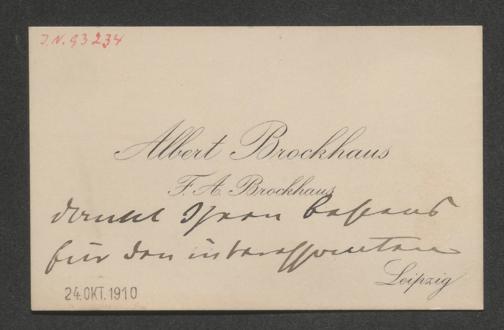 J.N. 93234
Albert Brockhaus
F. A. Brockhaus
dankt Ihnen bestens
für den interessanten
Leipzig
24. OKT. 1910